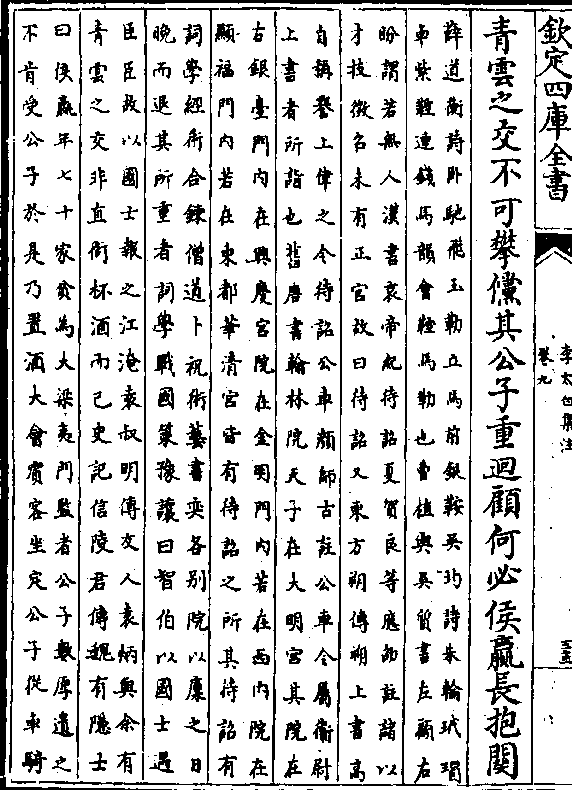 欽定四庫全書
李太白集注
卷九
青雲之交不可攀儻其公子重迴顧何必侯嬴長抱關
薛道衡詩卧馳飛玉勒立馬前銀鞍吳均詩朱輪玳瑁
車紫鞚連錢馬韻會鞚馬勒也曹植與吳質書左顧右
盼謂若無人漢書哀帝紀待詔夏賀良等應劭註諸以
才技徵召未有正官故曰待詔又東方朔傳朔上書高
自稱譽上偉之令待詔公車顏師古註公車令屬衛尉
上書者所詣也舊唐書翰林院天子在大明宮其院在
右銀臺門内在興慶宮院在金明門内若在西内院在
顯福門内若在東都華清宮皆有待詔之所其待詔有
詞學經術合鍊僧道卜祝術藝書奕各別院以廪之日
晚而退其所重者詞學戰國策豫讓曰智伯以國士遇
臣臣故以國士報之江淹袁叔明傳友人袁炳與余有
青雲之交非直銜杯酒而已史記信陵君傳魏有隱士
曰侯嬴年七十家貧為大梁夷門監者公子數厚遺之
不肯受公子於是乃置酒大會賓客坐定公子從車騎